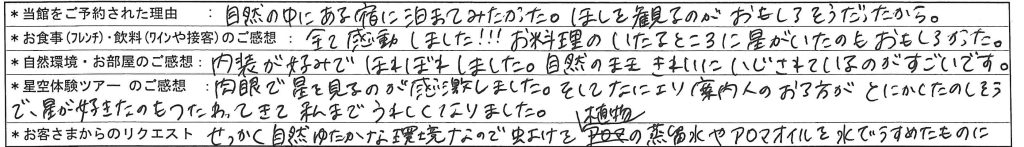 *当館をご予約された理由 : 自然の中にある宿に泊まてみたかった。ほしを観るのがおもしろそうだったから。
*お食事(フレンチ)・飲料(ワインや接客)のご感想 : 全て感動しました!!! お料理のいたるところに星がいたのもおもしろかった。
*自然環境・お部屋のご感想 : 内装が好みでほれぼれしました。自然のままきれいにいじされているのがすごいです。
*星空体験ツアーのご感想 : 肉眼で星を見るのが感激しました。そしてなにより案内人のお方がとにかくたのしそう
で、星が好きなのもつたわってきて私までうれしくなりました。
*お客さまからのリクエスト せっかく自然ゆたかな環境なので虫よけを植物の蒸留水やアロマオイルを水でうすめたものに